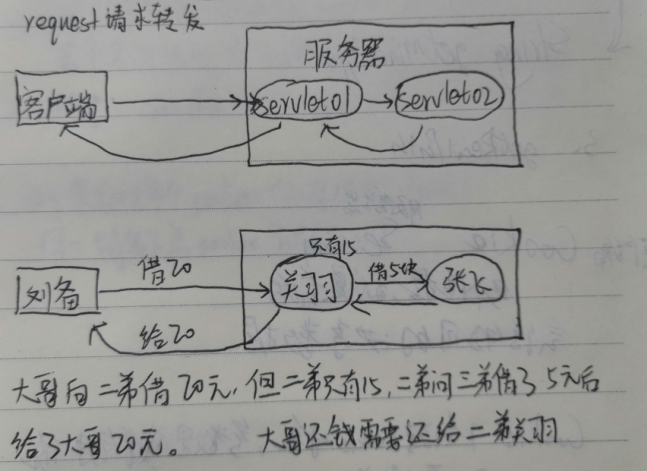 request请求转发
服务器
客户端
servlet01
servlet02
只有15
刘备
借20
关羽
借5块
张飞
给20
大哥向二弟借20元,但二弟只有15,二弟问三弟借了5元后
给了大哥20元。 大哥还钱需要还给二弟关羽